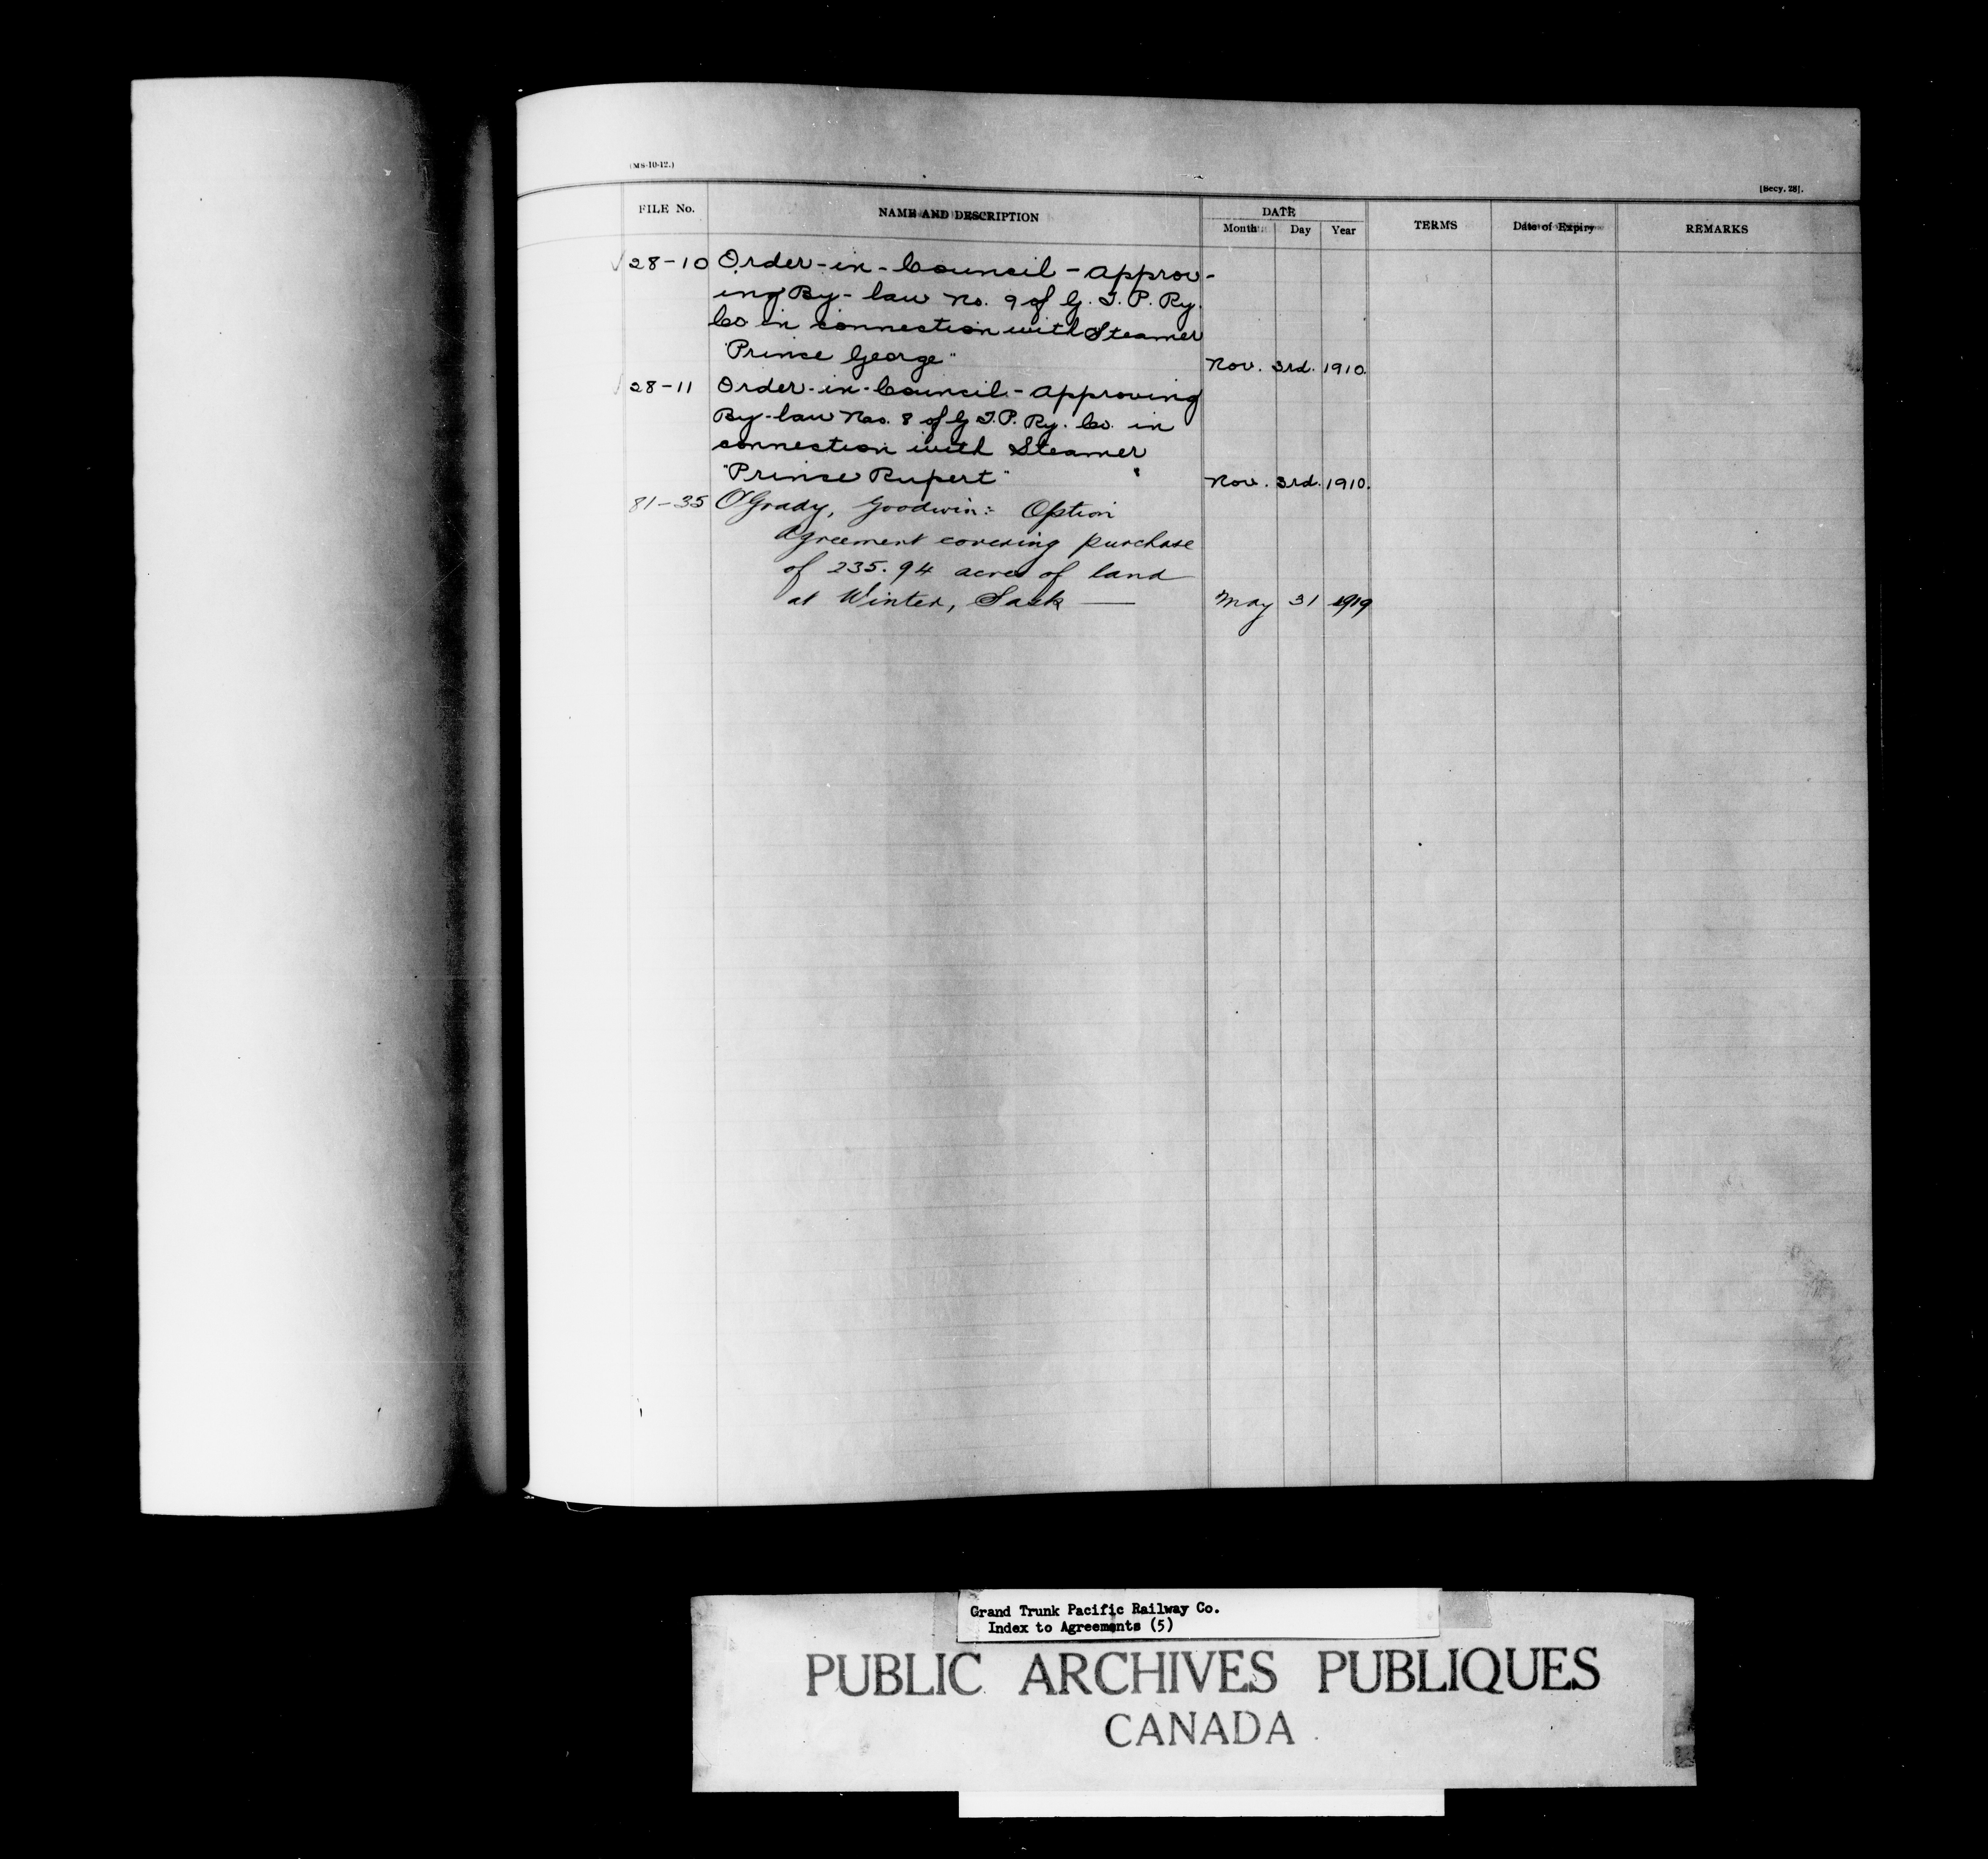 (MS-10-12.)
[Secy. 28].
FILE No. NAME AND DESCRIPTION DATE TERMS Date of Expiry REMARKS
Month Day Year
28-10 Order-in-Council - Approv-
ing By-law No. 9 of G. T. P. Ry.
Co. in connection with Steamer
"Prince George" Nov. 3rd. 1910.
28-11 Order-in-Council - Approving
By-law No. 8 of G T.P. Ry. Co. in
connection with Steamer
"Prince Rupert" Nov. 3rd. 1910.
81-35 O'Grady, Goodwin:- Option
Agreement covering purchase
of 235.94 acres of land
at Winter, Sask — May 31 1919
Grand Trunk Pacific Railway Co.
Index to Agreements (5)
PUBLIC ARCHIVES PUBLIQUES
CANADA